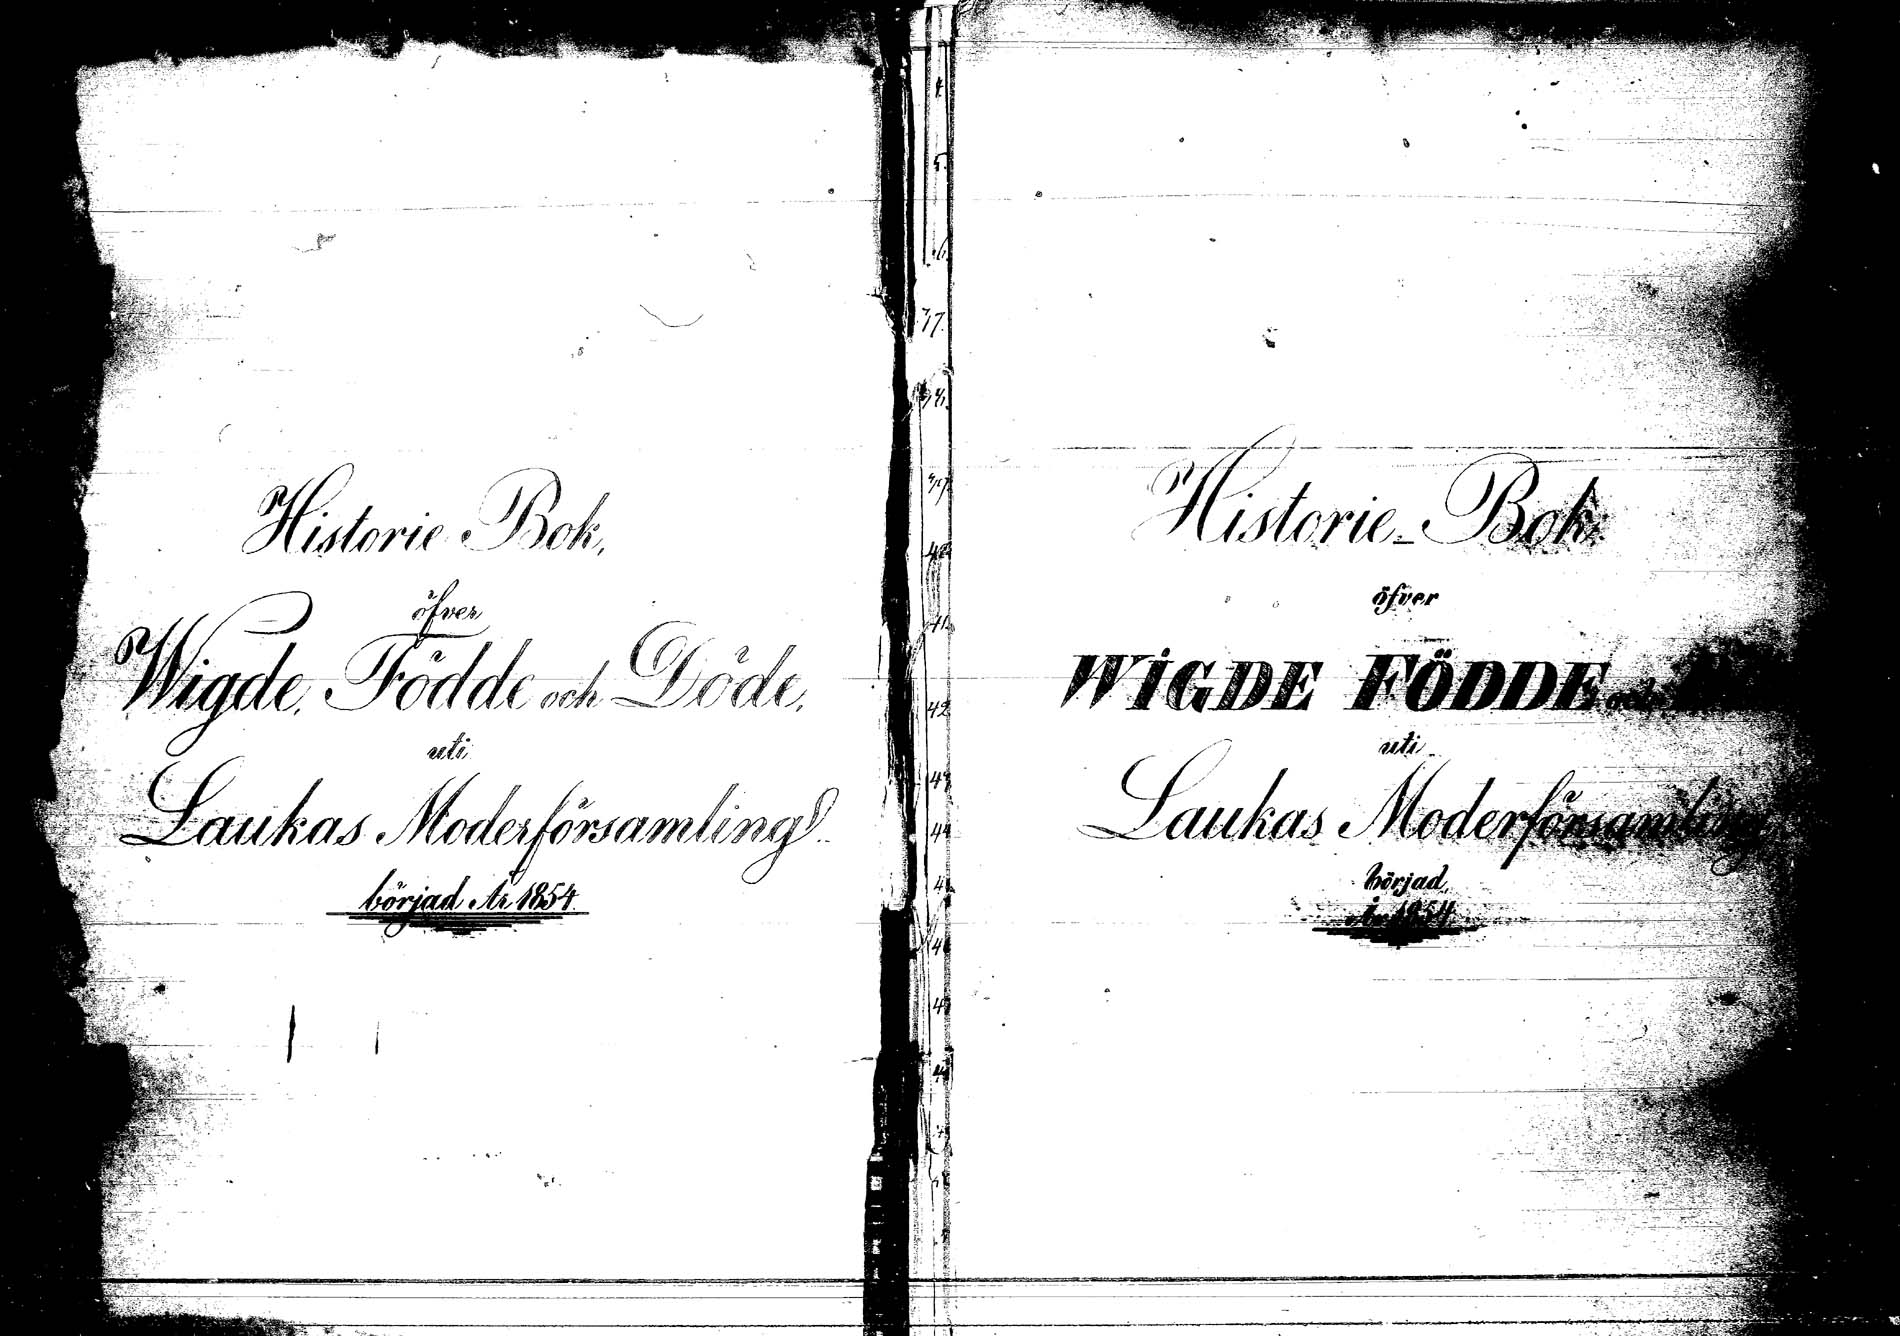 Historie Bok,
öfver
Wigde, Födde och Döde,
uti
Laukas Moderförsamling
började År 1854.
Historie-Bok.
öfver
WIGDE FÖDDE och
uti
Laukas Moderförsamling
börjad,
År 1854.
37.
42